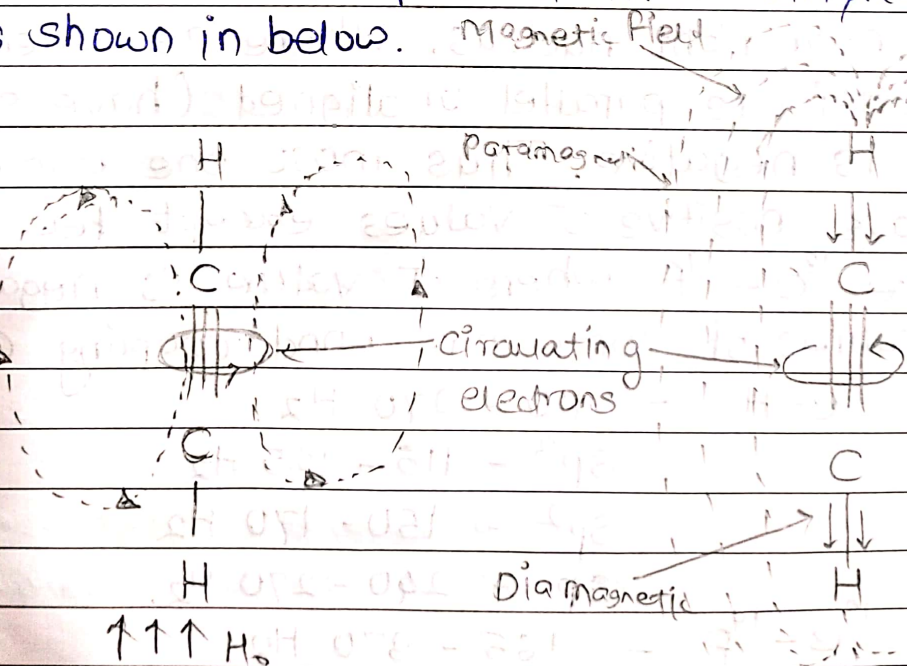 shown in below.
Magnetic Field
H
Paramagnetic
H
C
C
Circulating
electrons
C
C
H
Diamagnetic
H
↑↑↑ H₀